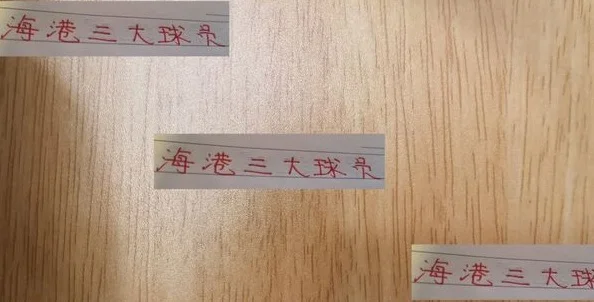 海港三大球员
海港三大球员
海港三大球